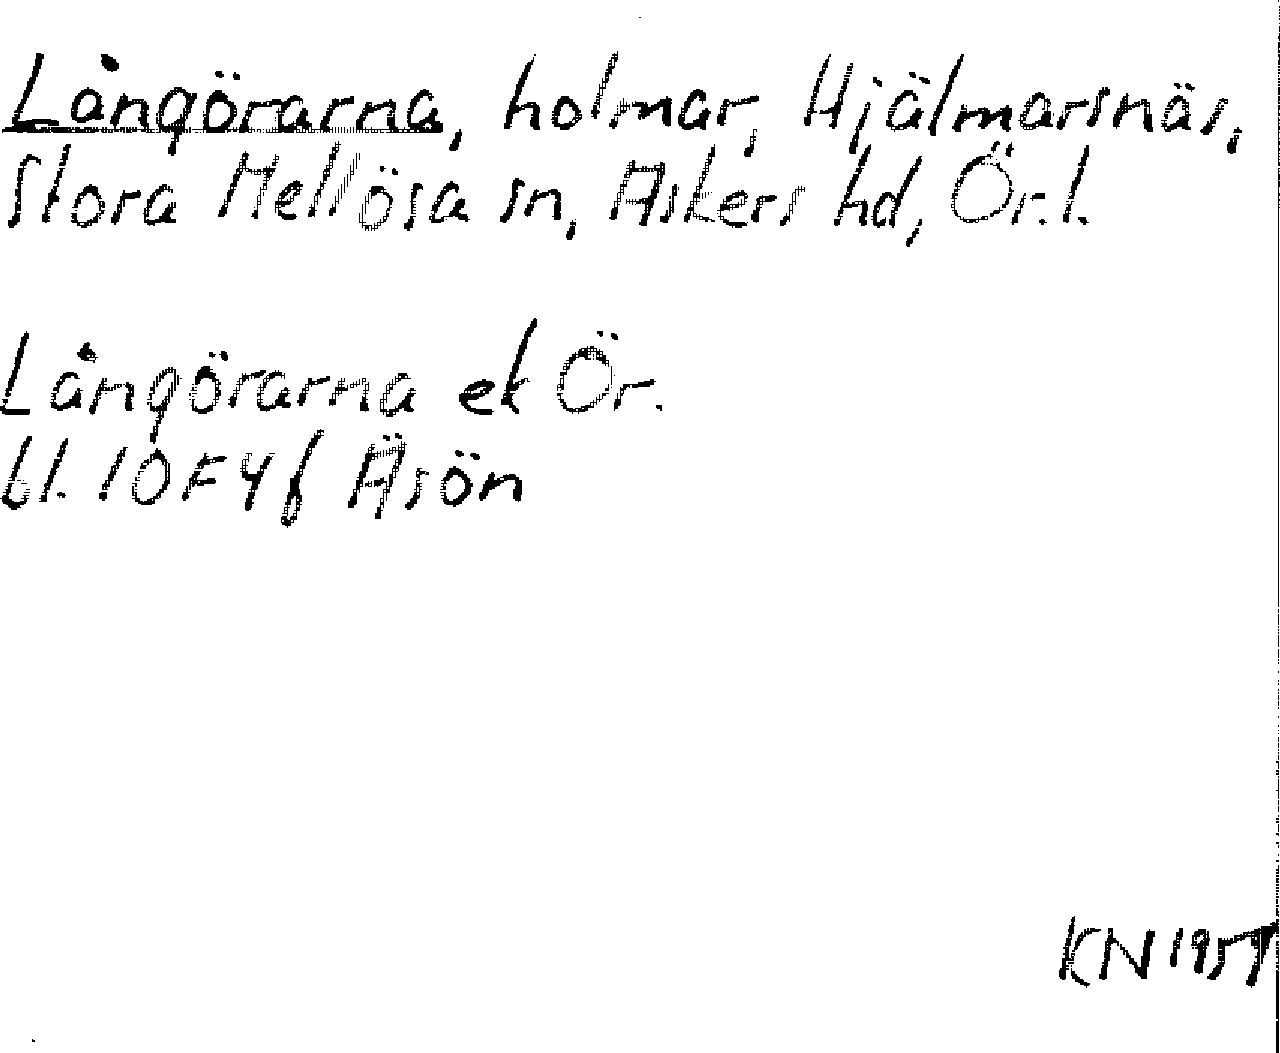 Långörarna, holmar, Hjälmarsnäs,
Stora Mellösa sn, Askers hd, Ör.l.
Långörarna ek Ör.
bl. 10F4f Äsön
KN 1957